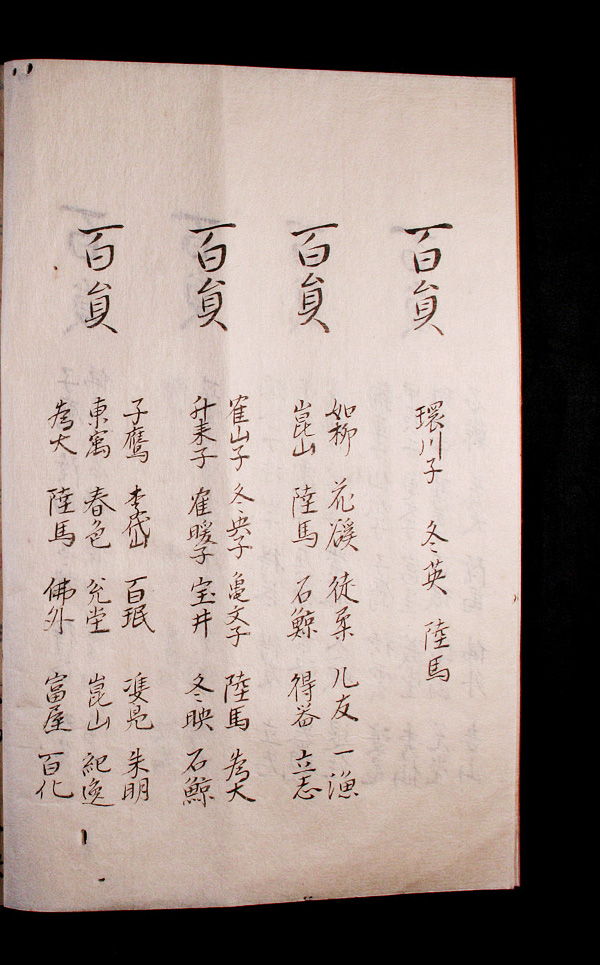 百員
環川子 冬英 陸馬
百員
如柳 花溪 徒柔 几友 一漁
崑山 陸馬 石鯨 得器 立志
百員
雀山子 冬央子 亀文子 陸馬 為大
升来子 雀暖子 宝井 冬映 石鯨
百員
子鷹 李岱 百珉 隻鳧 朱明
東寓 春色 兊堂 崑山 紀逸
為大 陸馬 佛外 富屋 百化